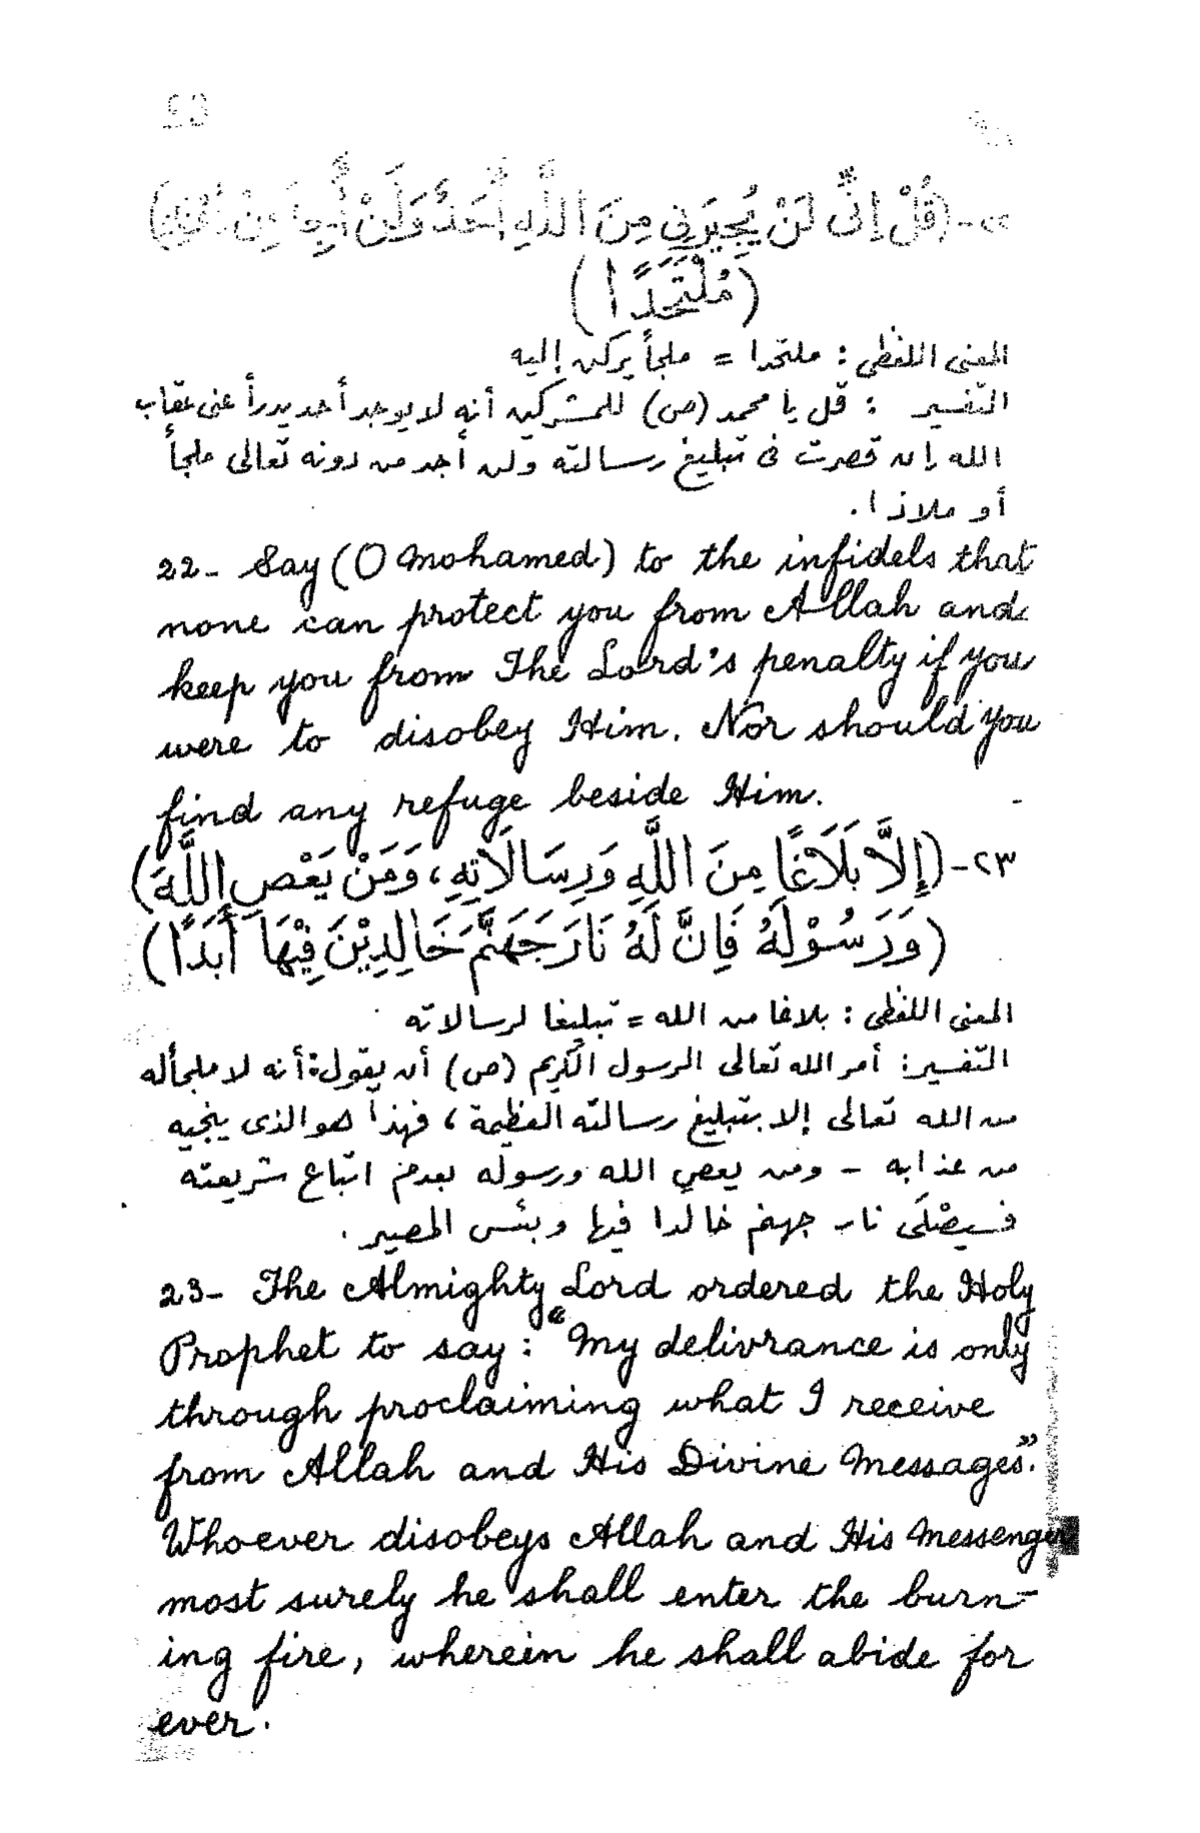 ٢٢- (قُلْ إِنِّى لَنْ يُجِيرَنِى مِنَ اللَّهِ أَحَدٌ وَلَنْ أَجِدَ مِنْ دُونِهِ)
(مُلْتَحَدًا)
المعنى اللفظى : ملتحدا = ملجأ يركن إليه
التفسير : قل يا محمد (ص) للمشركين أنه لا يوجد أحد يدرأ عنى عقاب
الله إن قصرت فى تبليغ رسالته ولن أجد من دونه تعالى ملجأ
أو ملاذا .
22- Say (O Mohamed) to the infidels that
none can protect you from Allah and
keep you from The Lord's penalty if you
were to disobey Him. Nor should you
find any refuge beside Him.
٢٣- (إِلَّا بَلَاغًا مِنَ اللَّهِ وَرِسَالَاتِهِ ، وَمَنْ يَعْصِ اللَّهَ)
(وَرَسُوْلَهُ فَإِنَّ لَهُ نَارَ جَهَنَّمَ خَالِدِيْنَ فِيْهَا أَبَدًا)
المعنى اللفظى : بلاغا من الله = تبليغا لرسالاته
التفسير : أمر الله تعالى الرسول الكريم (ص) أن يقول : أنه لا ملجأ له
من الله تعالى إلا بتبليغ رسالته العظيمة ، فهذا هو الذى ينجيه
من عذابه - ومن يعص الله ورسوله بعدم اتباع شريعته
فسيصْلَى نار جهنم خالدا فيها وبئس المصير .
23- The Almighty Lord ordered the Holy
Prophet to say : "My delivrance is only
through proclaiming what I receive
from Allah and His Divine Messages".
Whoever disobeys Allah and His Messenger
most surely he shall enter the burn-
ing fire, wherein he shall abide for
ever.